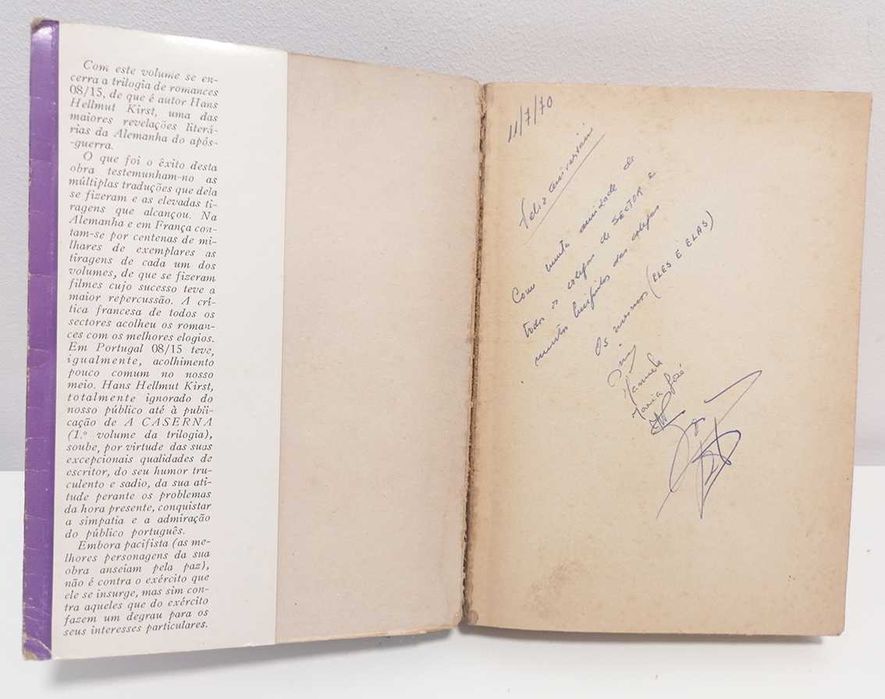 Com este volume se en-
cerra a trilogia de romances
08/15, de que é autor Hans
Hellmut Kirst, uma das
maiores revelações literá-
rias da Alemanha do após-
-guerra.
O que foi o êxito desta
obra testemunham-no as
múltiplas traduções que dela
se fizeram e as elevadas ti-
ragens que alcançou. Na
Alemanha e em França con-
tam-se por centenas de mi-
lhares de exemplares as
tiragens de cada um dos
volumes, de que se fizeram
filmes cujo sucesso teve a
maior repercussão. A crí-
tica francesa de todos os
sectores acolheu os roman-
ces com os melhores elogios.
Em Portugal 08/15 teve,
igualmente, acolhimento
pouco comum no nosso
meio. Hans Hellmut Kirst,
totalmente ignorado do
nosso público até à publi-
cação de A CASERNA
(1.º volume da trilogia),
soube, por virtude das suas
excepcionais qualidades de
escritor, do seu humor tru-
culento e sadio, da sua ati-
tude perante os problemas
da hora presente, conquistar
a simpatia e a admiração
do público português.
Embora pacifista (as me-
lhores personagens da sua
obra anseiam pela paz),
não é contra o exército que
ele se insurge, mas sim con-
tra aqueles que do exército
fazem um degrau para os
seus interesses particulares.
11/7/70
Feliz aniversário
Com muita amizade de
todos os colegas do SECTOR e
muitos beijinhos das colegas
Os mesmos (ELES E ELAS)
Manuela
Maria José